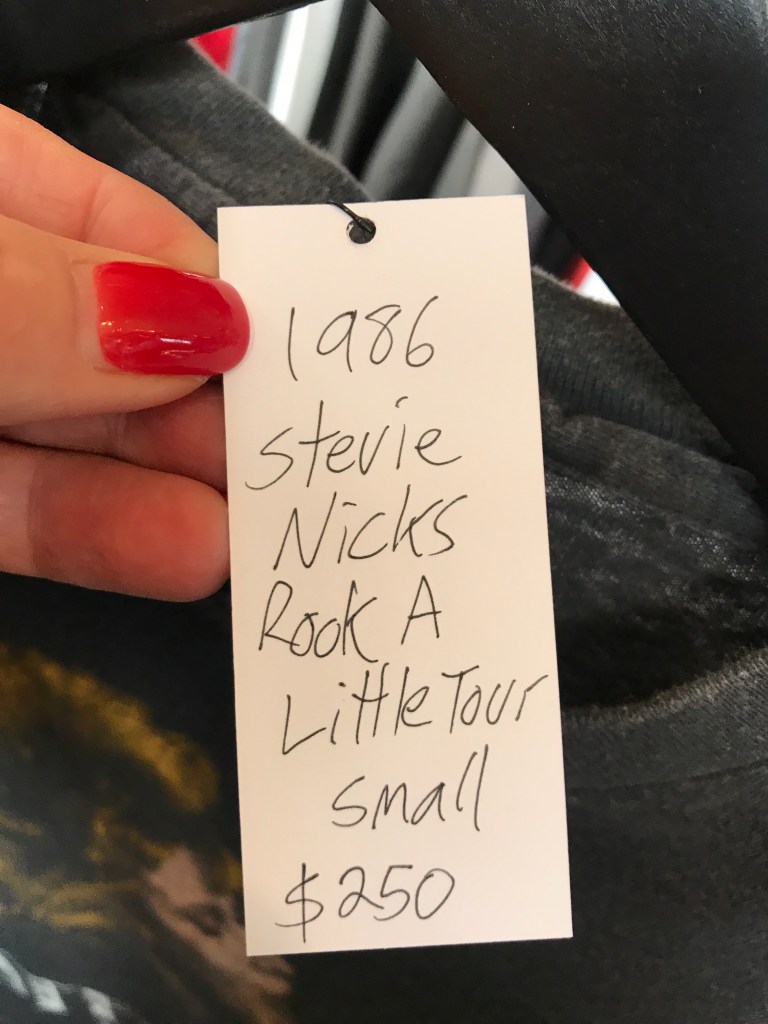 1986
Stevie
Nicks
Rook A
Little Tour
Small
$250